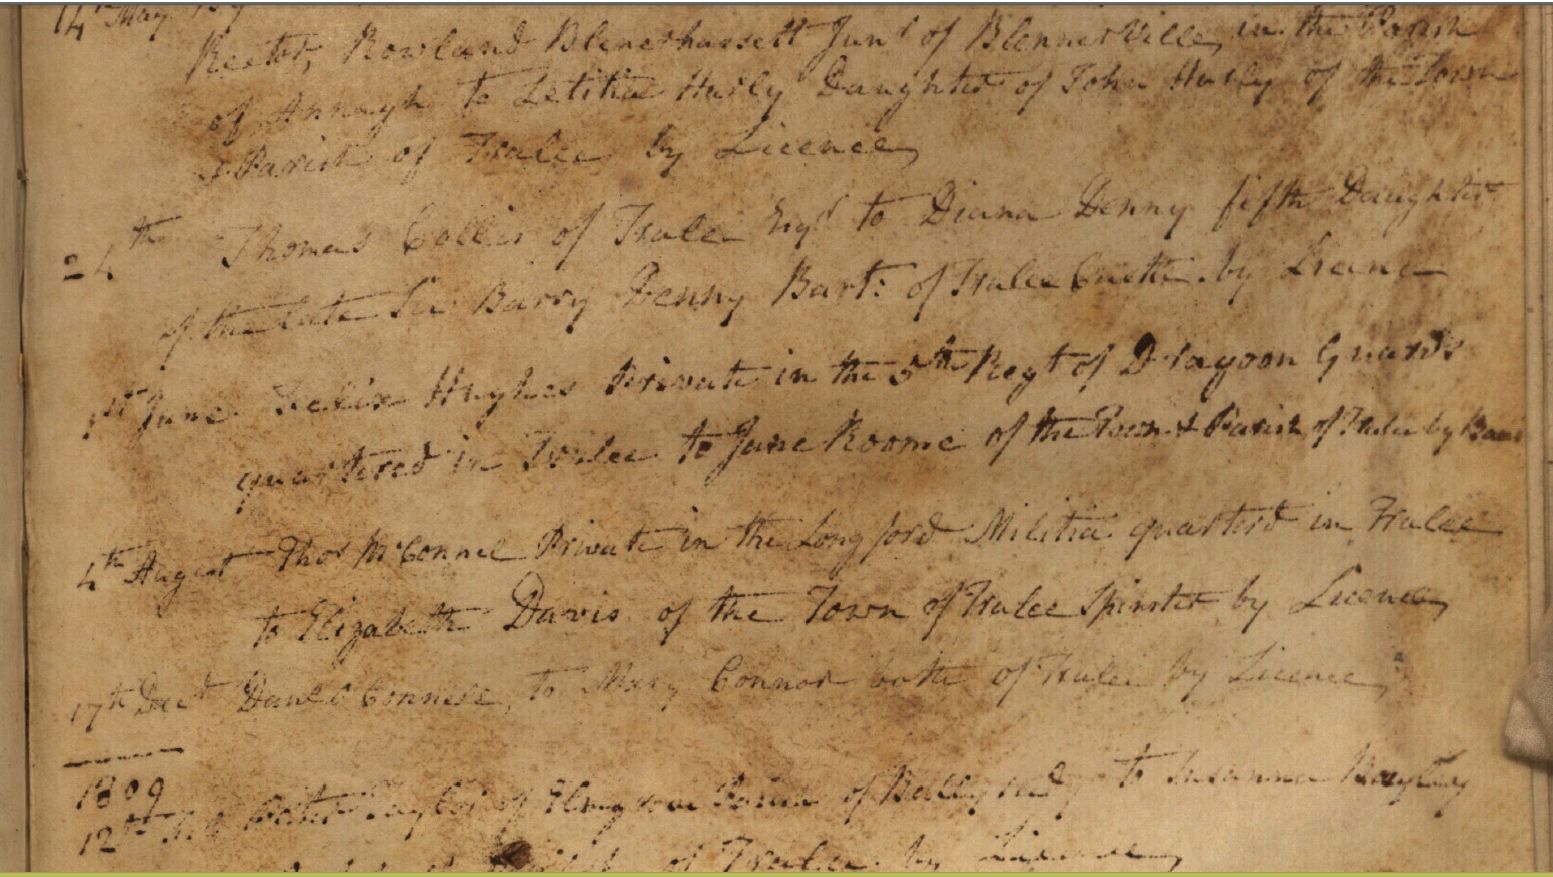 14th May
Rector, Rowland Blenerhassett Junr of BlennerVille, in the Parish
of Annagh to Letitia Hurly Daughter of John Hurly of the Town
& Parish of Tralee by Licence,
4th Thomas Collis of Tralee Esqr to Diana Denny fifth Daughter
of the Late Sir Barry Denny Bart: of Tralee Castle by Licence
1st June Felix Hughes Private in the 5th Regt of Dragoon Guards
quartered in Tralee to Jane Roome of the Town & Parish of Tralee by Bans
4th August Thos McConnel Private in the Longford Militia quarterd in Tralee
to Elizabeth Davis of the Town of Tralee Spinster by Licence,
17th Decr Danl O Connell, to Mary Connor both of Tralee by Licence,
1809
12th Feb Peter Taylor of Parish of Ballyseedy to Susanna
of Tralee by Licence,